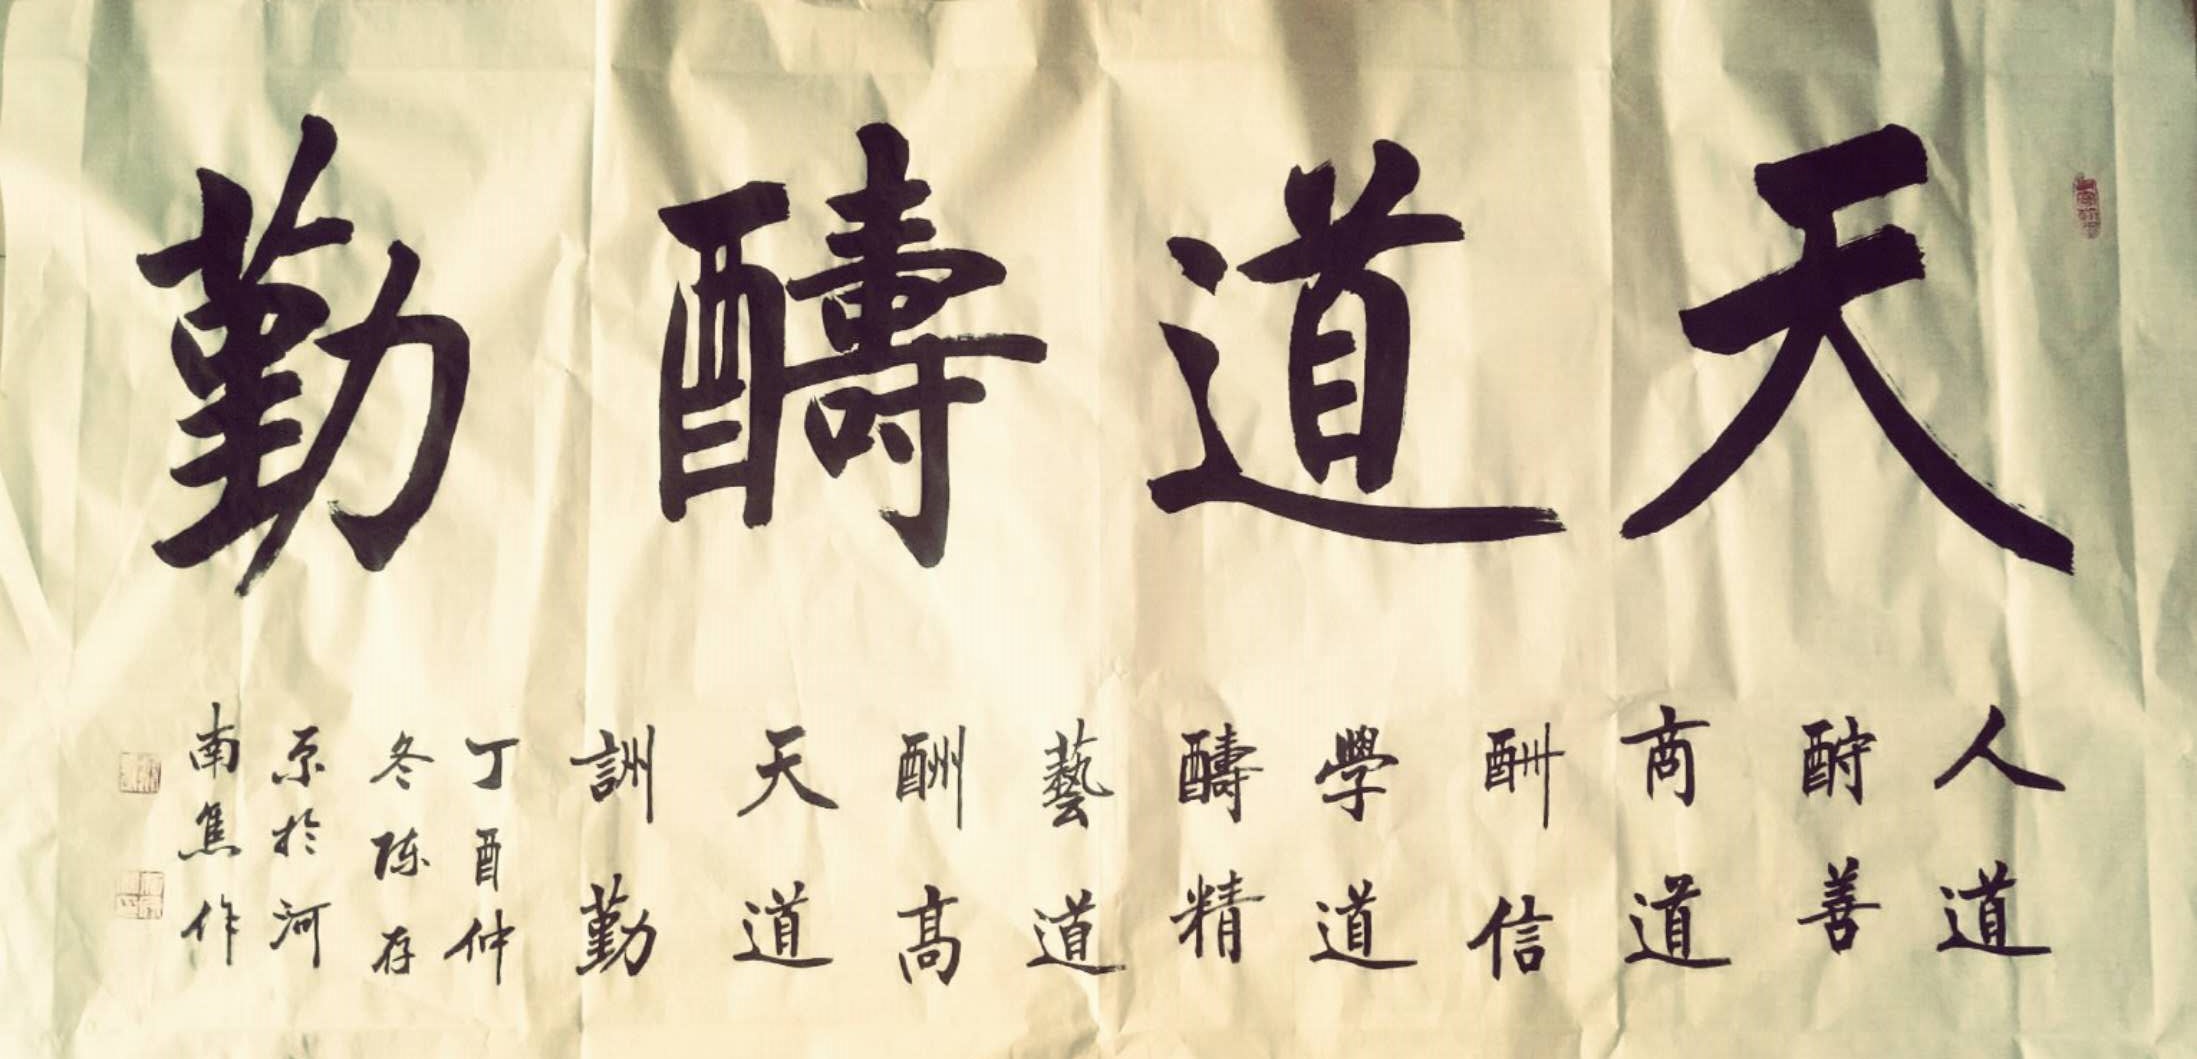 天道醻勤
人道
酧善
商道
酬信
學道
醻精
藝道
酬高
天道
詶勤
丁酉仲
冬陈存
原於河
南焦作